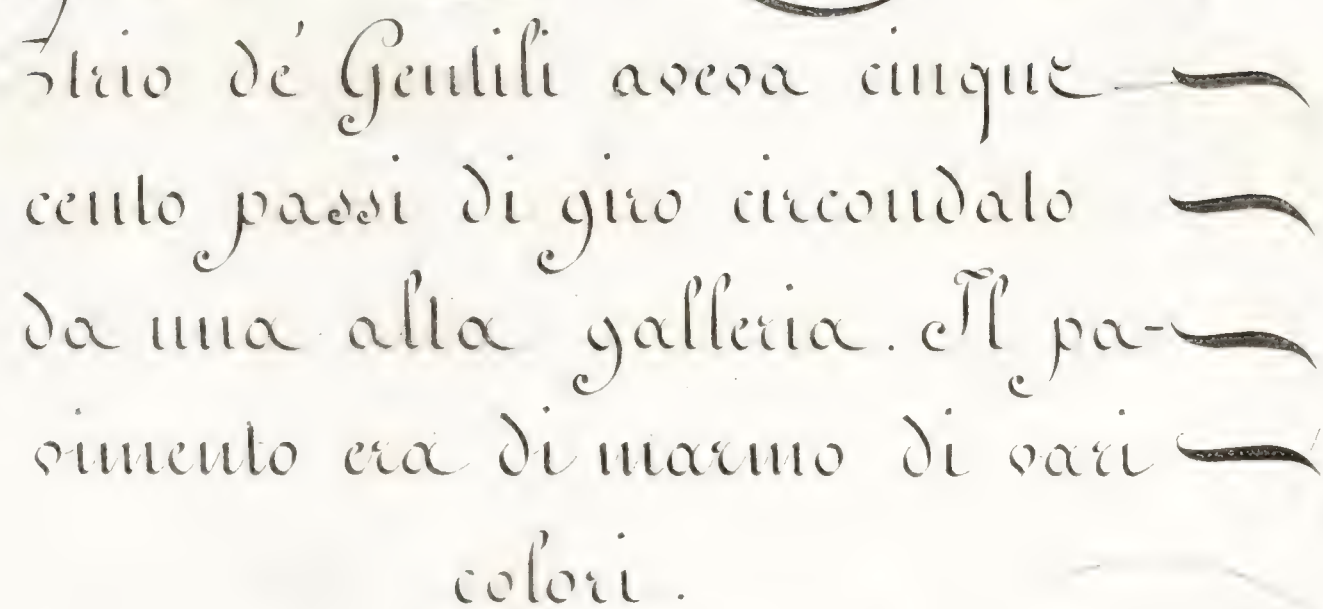 Atrio de' Gentili aveva cinque
cento passi di giro circondato
da una alta galleria. Il pa-
vimento era di marmo di vari
colori.